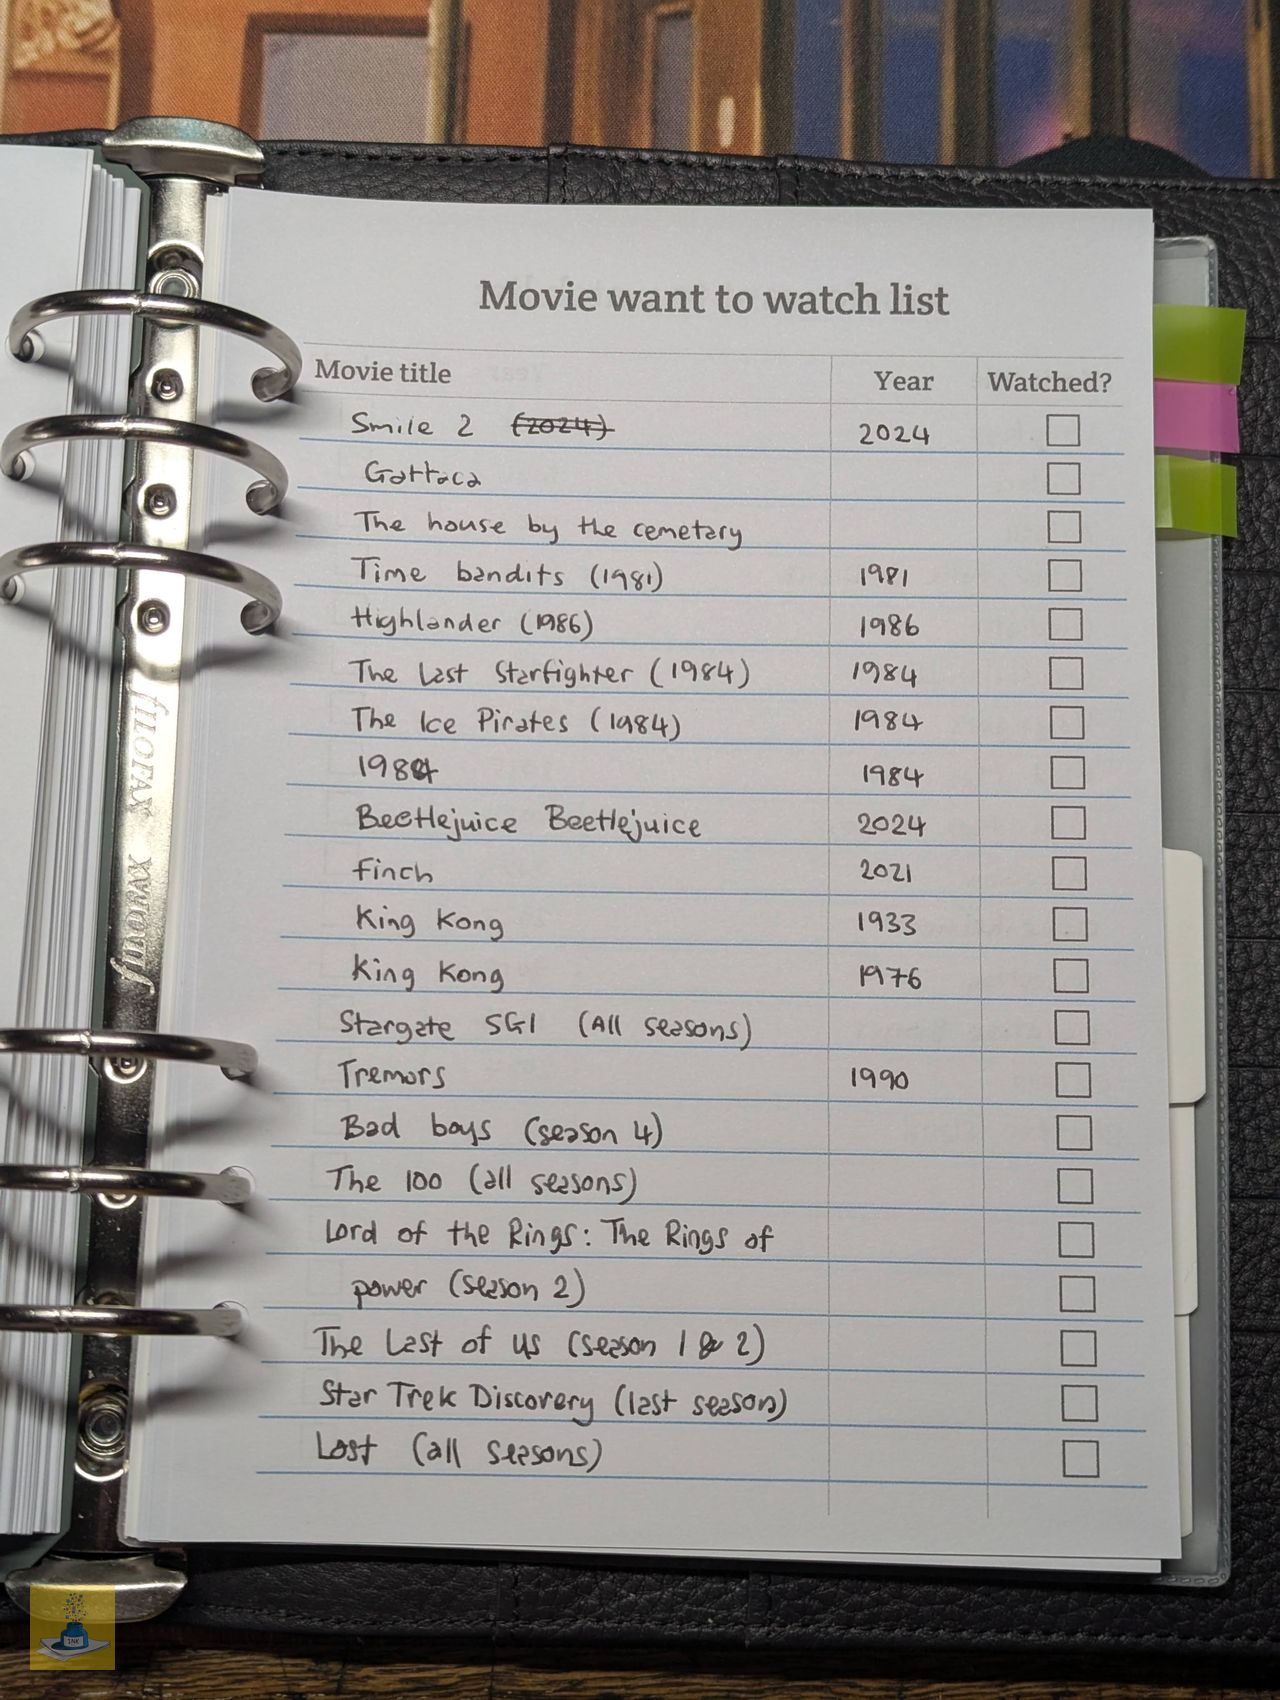 Movie want to watch list
Movie title Year Watched?
Smile 2 (2024) 2024
Gattaca
The house by the cemetary
Time bandits (1981) 1981
Highlander (1986) 1986
The Last Starfighter (1984) 1984
The Ice Pirates (1984) 1984
1984 1984
Beetlejuice Beetlejuice 2024
Finch 2021
King Kong 1933
King Kong 1976
Stargate SG1 (All seasons)
Tremors 1990
Bad boys (season 4)
The 100 (all seasons)
Lord of the Rings: The Rings of
power (season 2)
The Last of us (season 1 & 2)
Star Trek Discovery (last season)
Lost (all seasons)
filofax
filofax
INK